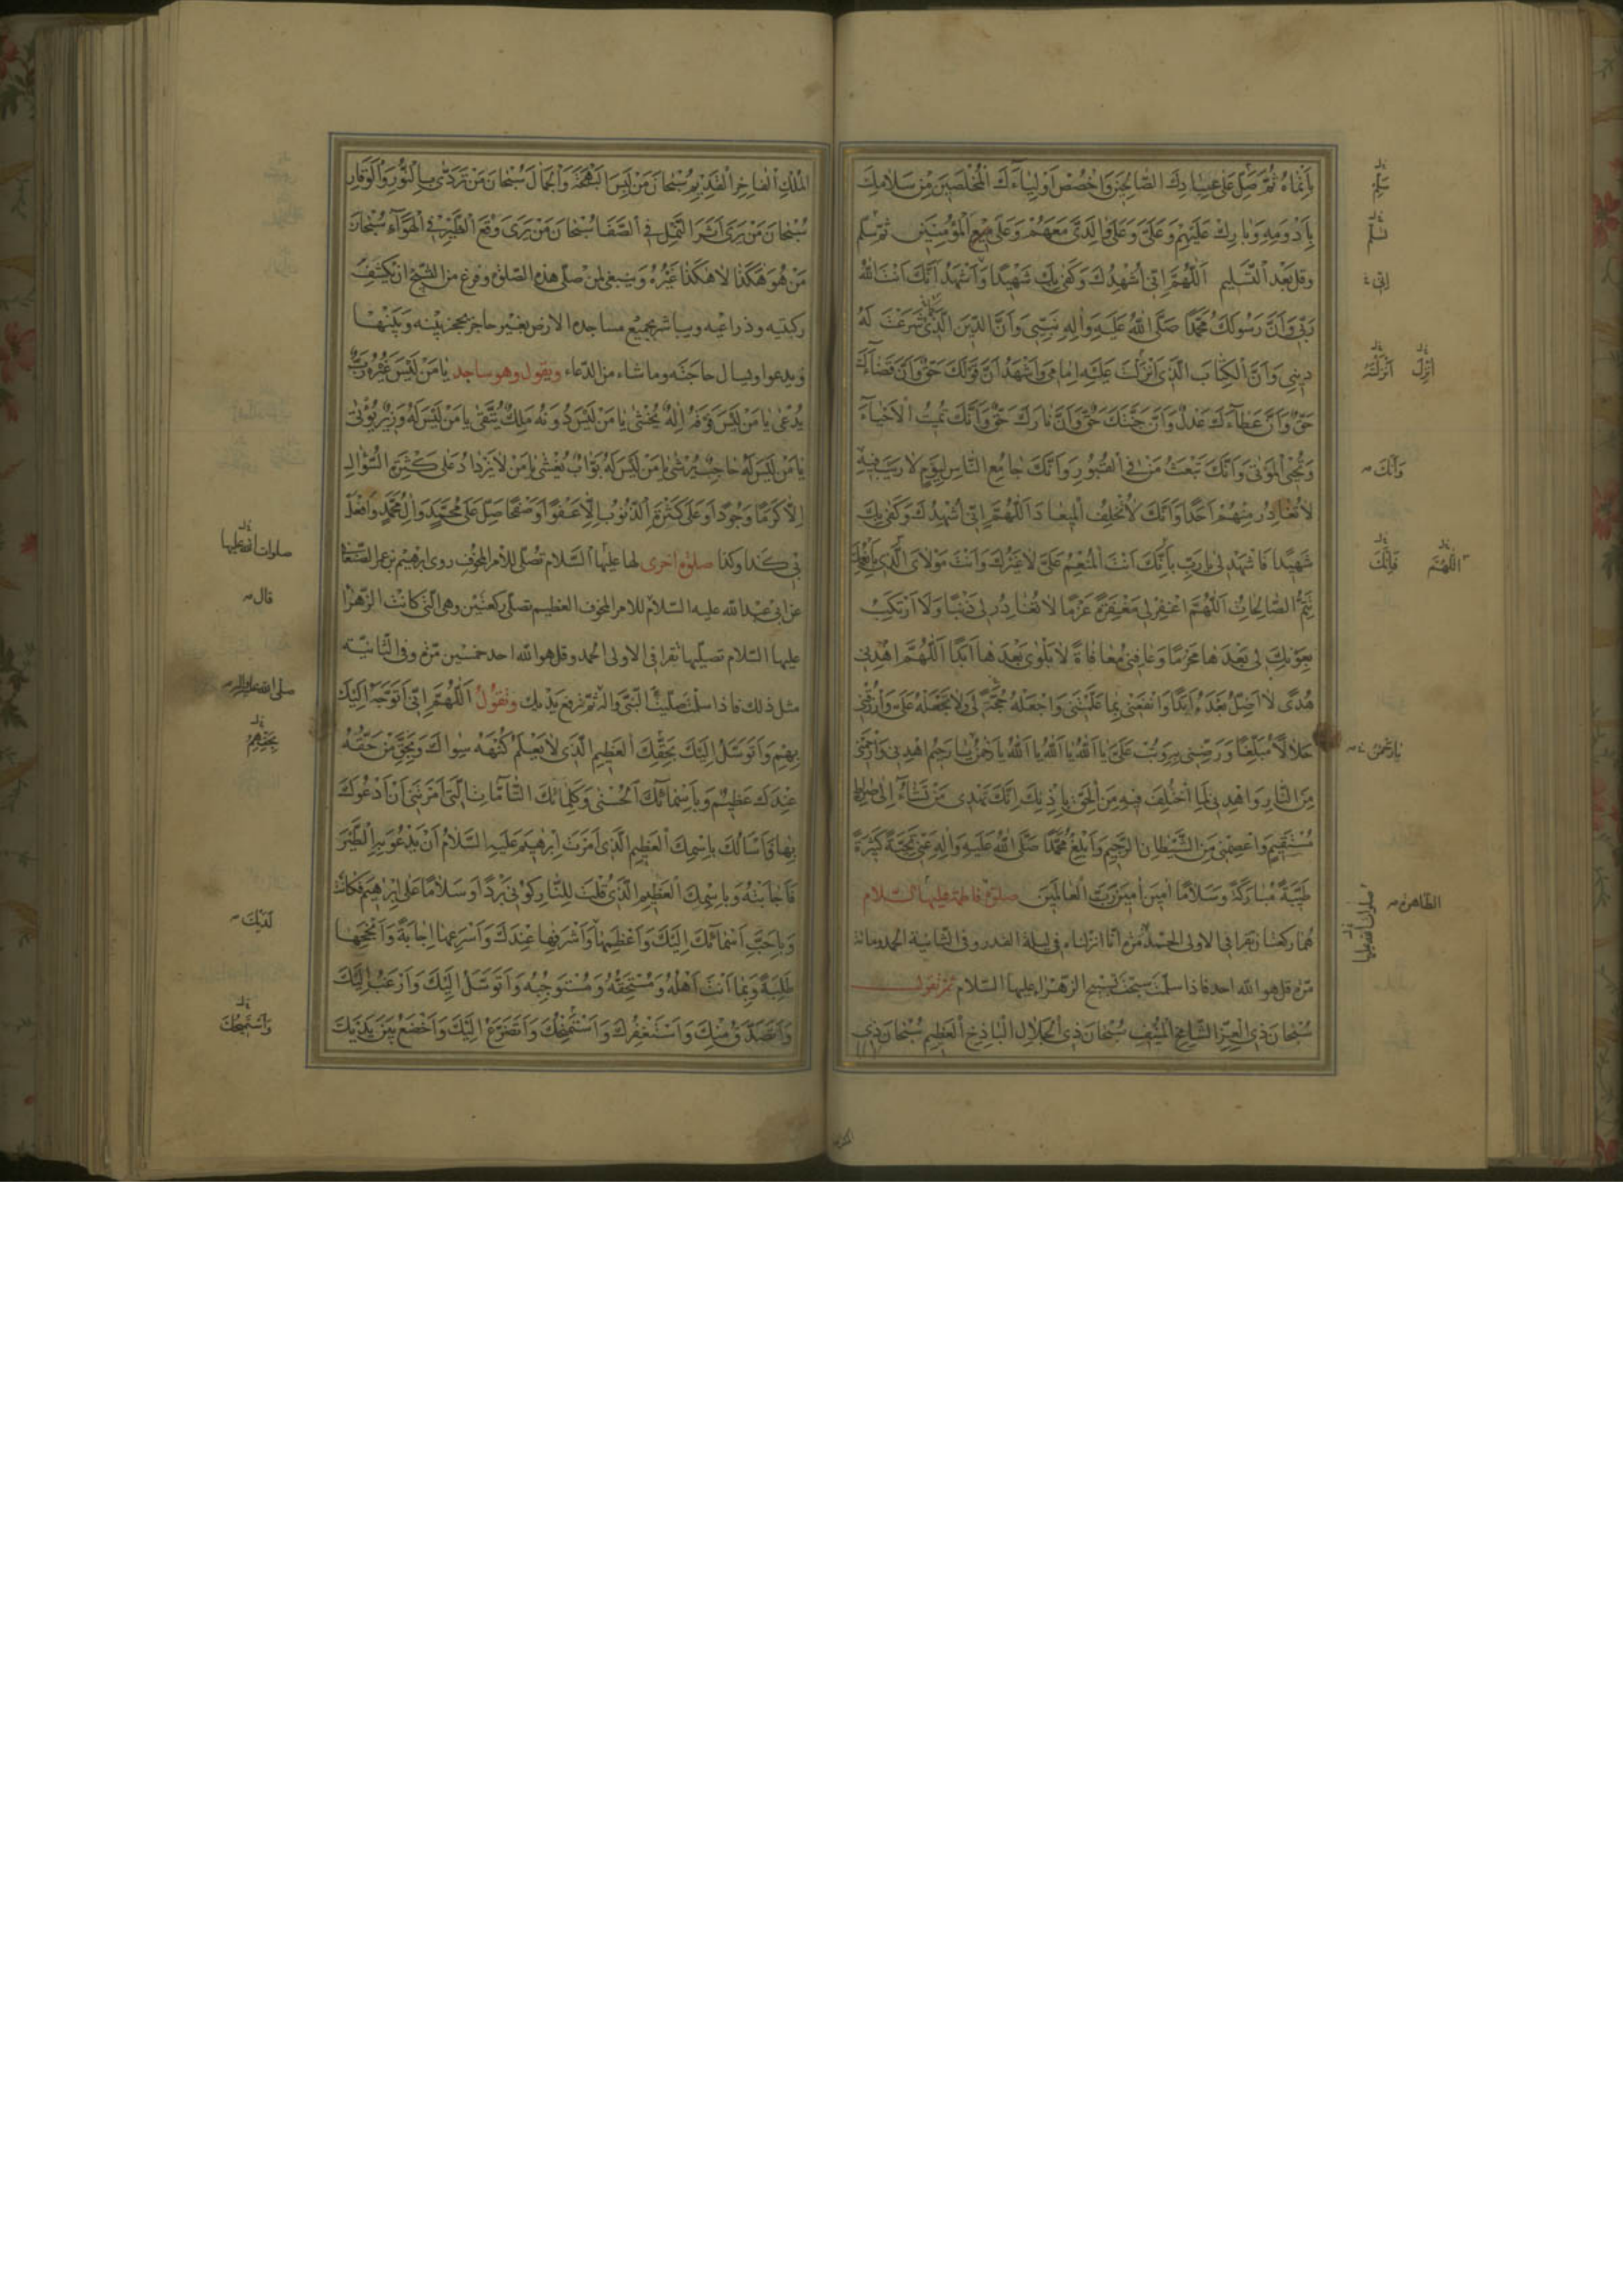 بِأَنْمَاهُ ثُمَّ صَلِّ عَلَىٰ عِبَادِكَ الصَّالِحِينَ وَاخْصُصْ أَوْلِيَاءَكَ الْمُخْلَصِينَ مِنْ سَلَامِكَ
بِأَدْوَمِهِ وَبَارِكْ عَلَيْهِمْ وَعَلَيَّ وَعَلَىٰ وَالِدَيَّ مَعَهُمْ وَعَلَىٰ جَمِيعِ الْمُؤْمِنِينَ ثم سلم
وقل بَعْدَ التَّسْلِيمِ اَللّٰهُمَّ اِنِّي اُشْهِدُكَ وَكَفَىٰ بِكَ شَهِيدًا وَاَشْهَدُ اَنَّكَ اَنْتَ اللّٰهُ
رَبِّي وَاَنَّ رَسُولَكَ مُحَمَّدًا صَلَّى اللّٰهُ عَلَيْهِ وَاٰلِهِ نَبِيِّي وَاَنَّ الدِّينَ الَّذِي شَرَعْتَ لَهُ
دِينِي وَاَنَّ الْكِتَابَ الَّذِي اَنْزَلْتَ عَلَيْهِ اِمَامِي وَاَشْهَدُ اَنَّ قَوْلَكَ حَقٌّ وَاَنَّ قَضَآءَكَ
حَقٌّ وَاَنَّ عَطَآءَكَ عَدْلٌ وَاَنَّ جَنَّتَكَ حَقٌّ وَاَنَّ نَارَكَ حَقٌّ وَاَنَّكَ تُمِيتُ الْاَحْيَآءَ
وَتُحْيِي الْمَوْتَىٰ وَاَنَّكَ تَبْعَثُ مَنْ فِي الْقُبُورِ وَاَنَّكَ جَامِعُ النَّاسِ لِيَوْمٍ لَا رَيْبَ فِيهِ
لَا تُغَادِرُ مِنْهُمْ اَحَدًا وَاَنَّكَ لَا تُخْلِفُ الْمِيعَادَ اَللّٰهُمَّ اِنِّي اُشْهِدُكَ وَكَفَىٰ بِكَ
شَهِيدًا فَاشْهَدْ لِي يَا رَبِّ بِاَنَّكَ اَنْتَ الْمُنْعِمُ عَلَيَّ لَا غَيْرُكَ وَاَنْتَ مَوْلَايَ الَّذِي بِاَنْعُمِكَ
تَتِمُّ الصَّالِحَاتُ اَللّٰهُمَّ اغْفِرْ لِي مَغْفِرَةً عَزْمًا لَا تُغَادِرُ لِي ذَنْبًا وَلَا اَرْتَكِبُ
بِعَوْنِكَ لِي بَعْدَهَا مُحَرَّمًا وَعَافِنِي مُعَافَاةً لَا بَلْوَىٰ بَعْدَهَا اَبَدًا اَللّٰهُمَّ اهْدِنِي
هُدًى لَا اَضِلُّ بَعْدَهُ اَبَدًا وَانْفَعْنِي بِمَا عَلَّمْتَنِي وَاجْعَلْهُ حُجَّةً لِي وَلَا تَجْعَلْهُ عَلَيَّ وَارْزُقْنِي
حَلَالًا مُبَلِّغًا وَرَضِّنِي بِهِ وَتُبْ عَلَيَّ يَا اَللّٰهُ يَا اَللّٰهُ يَا اَللّٰهُ يَا رَحْمٰنُ يَا رَحِيمُ اهْدِنِي وَارْحَمْنِي
مِنَ النَّارِ وَاهْدِنِي لِمَا اخْتُلِفَ فِيهِ مِنَ الْحَقِّ بِاِذْنِكَ اِنَّكَ تَهْدِي مَنْ تَشَآءُ اِلَىٰ صِرَاطٍ
مُسْتَقِيمٍ وَاعْصِمْنِي مِنَ الشَّيْطَانِ الرَّجِيمِ وَاَبْلِغْ مُحَمَّدًا صَلَّى اللّٰهُ عَلَيْهِ وَاٰلِهِ عَنِّي تَحِيَّةً كَثِيرَةً
طَيِّبَةً مُبَارَكَةً وَسَلَامًا اٰمِينَ اٰمِينَ رَبَّ الْعَالَمِينَ صلوة فاطمة عليها السلام
هُمَا ركعتان تقرا في الاولى الحمد مَرّة وانّا انزلناه في ليلة القدر وفي الثانية الحمد ومائة
مرّة قل هو الله احد فاذا سلّمت سبّحت تسبيح الزّهراء عليها السّلام ثم تقول
سُبْحَانَ ذِي الْعِزِّ الشَّامِخِ الْمُنِيفِ سُبْحَانَ ذِي الْجَلَالِ الْبَاذِخِ الْعَظِيمِ سُبْحَانَ ذِي
سَلِّمْ
تسلم
اِنِّي
اَنْزَلْتَهُ
اَنْزَلَ
وَاَنَّكَ
فَاِنَّكَ
اللّٰهُمَّ
يَا رَحْمٰنُ
الطّاهرة
صلوات الله عليها
الْمُلْكِ الْفَاخِرِ الْقَدِيمِ سُبْحَانَ مَنْ لَبِسَ الْبَهْجَةَ وَالْجَمَالَ سُبْحَانَ مَنْ تَرَدَّىٰ بِالنُّورِ وَالْوَقَارِ
سُبْحَانَ مَنْ يَرَىٰ اَثَرَ النَّمْلِ فِي الصَّفَا سُبْحَانَ مَنْ يَرَىٰ وَقْعَ الطَّيْرِ فِي الْهَوَآءِ سُبْحَانَ
مَنْ هُوَ هٰكَذَا لَا هٰكَذَا غَيْرُهُ وَينبغي لمن صلّى هذه الصّلوة وفرغ من التّسبيح ان يكشف
ركبتيه وذراعيه ويباشر بجميع مساجده الارض بغير حاجز يحجز بينه وبينها
ويدعوا ويسال حاجته وما شاء من الدّعاء ويقول وهو ساجد يَا مَنْ لَيْسَ غَيْرُهُ رَبٌّ
يُدْعَىٰ يَا مَنْ لَيْسَ فَوْقَهُ اِلٰهٌ يُخْشَىٰ يَا مَنْ لَيْسَ دُونَهُ مَلِكٌ يُتَّقَىٰ يَا مَنْ لَيْسَ لَهُ وَزِيرٌ يُؤْتَىٰ
يَا مَنْ لَيْسَ لَهُ حَاجِبٌ يُرْشَىٰ يَا مَنْ لَيْسَ لَهُ بَوَّابٌ يُغْشَىٰ يَا مَنْ لَا يَزْدَادُ عَلَىٰ كَثْرَةِ السُّؤَالِ
اِلَّا كَرَمًا وَجُودًا وَعَلَىٰ كَثْرَةِ الذُّنُوبِ اِلَّا عَفْوًا وَصَفْحًا صَلِّ عَلَىٰ مُحَمَّدٍ وَاٰلِ مُحَمَّدٍ وَافْعَلْ
بِي كَذَا وَكَذَا صلوة اخرى لها عليها السّلام تُصلّى للأمر المخوف روى ابرهيم بن عمر الصنعاني
عن ابي عبد الله عليه السّلام للامر المخوف العظيم تصلّي ركعتين وهي الّتي كانت الزهراء
عليها السّلام تصلّيها تقرا في الاولى الحمد وقل هو الله احد خمسين مرّة وفي الثانية
مثل ذلك فاذا سلّمت صلّيت على النّبيّ واله ثمّ ترفع يديك وتقول اَللّٰهُمَّ اِنِّي اَتَوَجَّهُ اِلَيْكَ
بِهِمْ وَاَتَوَسَّلُ اِلَيْكَ بِحَقِّكَ الْعَظِيمِ الَّذِي لَا يَعْلَمُ كُنْهَهُ سِوَاكَ وَبِحَقِّ مَنْ حَقُّهُ
عِنْدَكَ عَظِيمٌ وَبِاَسْمَائِكَ الْحُسْنَىٰ وَكَلِمَاتِكَ التَّامَّاتِ الَّتِي اَمَرْتَنِي اَنْ اَدْعُوَكَ
بِهَا وَاَسْاَلُكَ بِاسْمِكَ الْعَظِيمِ الَّذِي اَمَرْتَ اِبْرٰهِيمَ عَلَيْهِ السَّلَامُ اَنْ يَدْعُوَ بِهِ الطَّيْرَ
فَاَجَابَتْهُ وَبِاسْمِكَ الْعَظِيمِ الَّذِي قُلْتَ لِلنَّارِ كُونِي بَرْدًا وَسَلَامًا عَلَىٰ اِبْرٰهِيمَ فَكَانَتْ
وَبِاَحَبِّ اَسْمَائِكَ اِلَيْكَ وَاَعْظَمِهَا وَاَشْرَفِهَا عِنْدَكَ وَاَسْرَعِهَا اِجَابَةً وَاَنْجَحِهَا
طَلِبَةً وَبِمَا اَنْتَ اَهْلُهُ وَمُسْتَحِقُّهُ وَمُسْتَوْجِبُهُ وَاَتَوَسَّلُ اِلَيْكَ وَاَرْغَبُ اِلَيْكَ
وَاَتَصَدَّقُ مِنْكَ وَاَسْتَغْفِرُكَ وَاَسْتَمْنِحُكَ وَاَتَضَرَّعُ اِلَيْكَ وَاَخْضَعُ بَيْنَ يَدَيْكَ
صلوات الله عليها
قال
صلى الله عليه واله
بِحَقِّهِمْ
لَدَيْكَ
وَاَسْتَمِيحُكَ